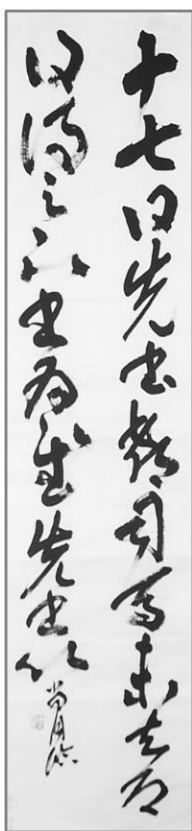 十七日先書郗司馬未去即
日得足下書為慰先書以